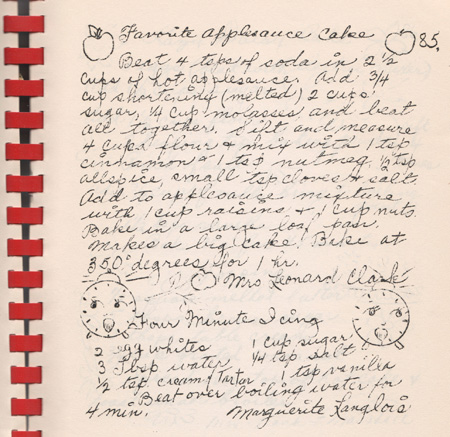 Favorite Applesauce Cake 85.
Beat 4 tsps of soda in 2 1/2
cups of hot applesauce. Add 3/4
cup shortening (melted) 2 cups
sugar, 1/4 cup molasses and beat
all together. Sift and measure
4 cups flour & mix with 1 tsp
cinnamon & 1 tsp nutmeg, 1/2 tsp
allspice, small tsp cloves & salt.
Add to applesauce mixture
with 1 cup raisins, & 1 cup nuts.
Bake in a large loaf pan.
Makes a big cake. Bake at
350° degrees for 1 hr.
Mrs Leonard Clark
Four Minute Icing
2 egg whites 1 cup sugar
3 Tbsp water 1/4 tsp salt
1/2 tsp cream Tartar 1 tsp vanilla
Beat over boiling water for
4 min. Marguerite Langlois